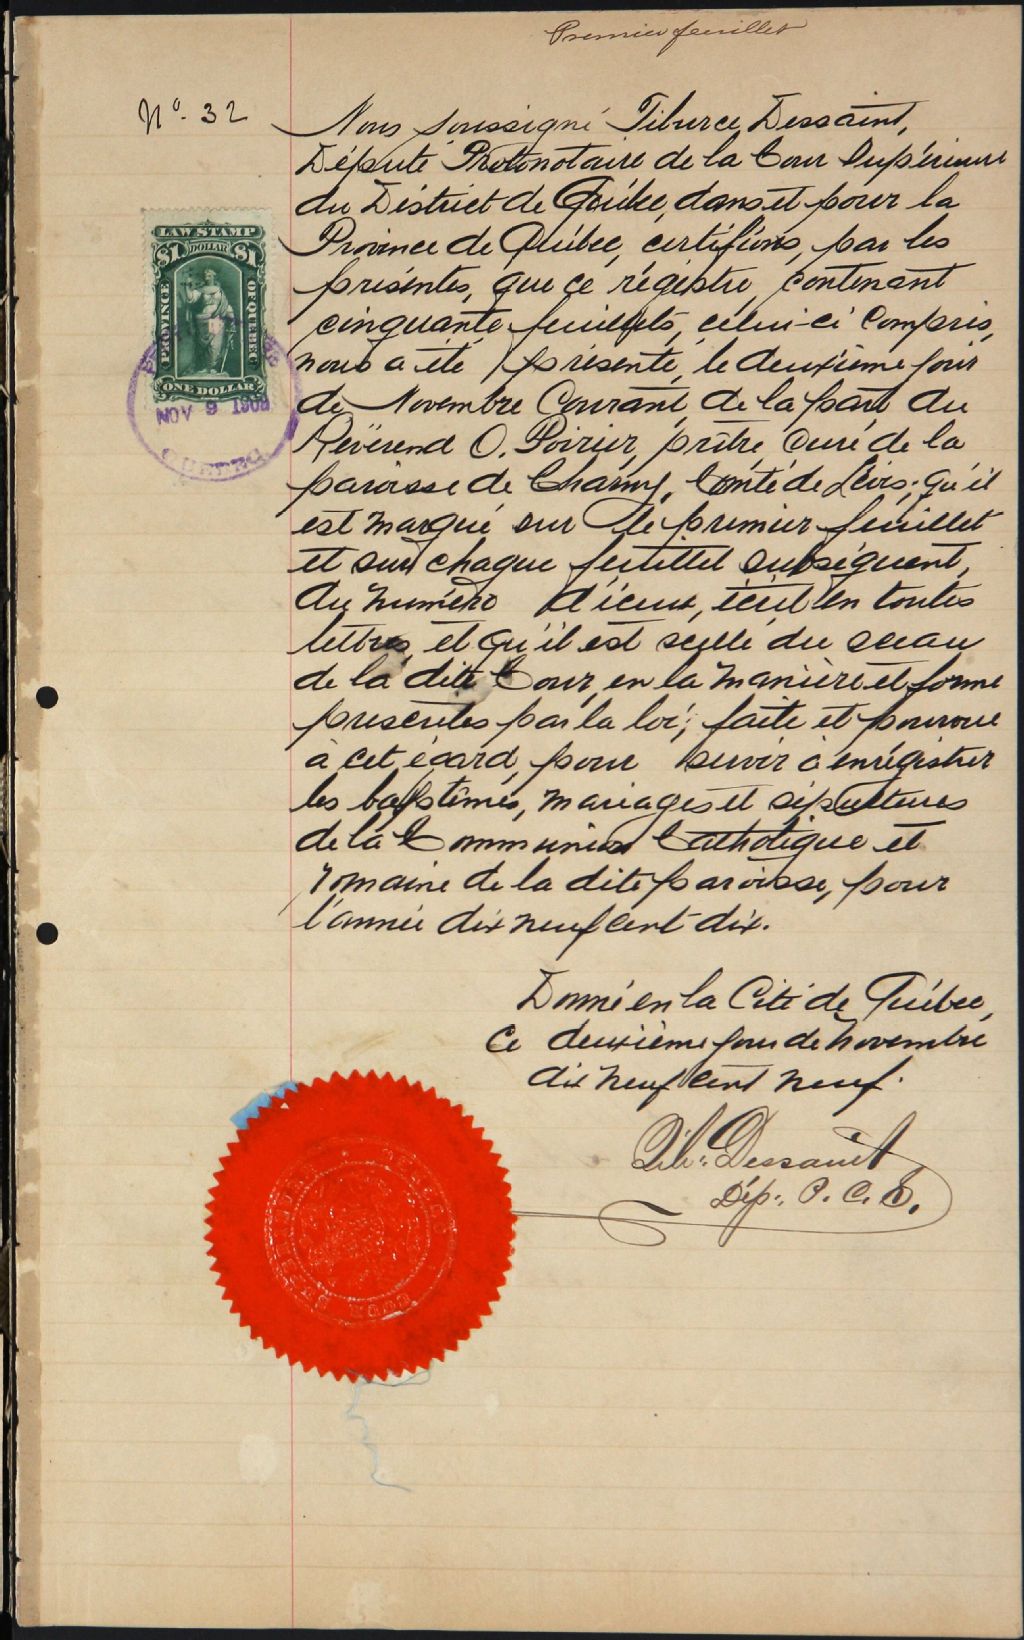 Premier feuillet
No. 32
Nous soussigné Tiburce Dessaint,
Député Protonotaire de la Cour Supérieure
du District de Québec, dans et pour la
Province de Québec, certifions, par les
présentes, que ce régistre, contenant
cinquante feuillets, celui-ci compris,
nous a été présenté, le deuxième jour
de Novembre Courant, de la part du
Révérend O. Poirier, prêtre, curé de la
paroisse de Charny, Comté de Lévis; qu'il
est marqué sur le premier feuillet
et sur chaque feuillet subséquent,
du numéro d'iceux, écrit en toutes
lettres, et qu'il est scellé du sceau
de la dite Cour, en la manière et forme
prescrites par la loi; faite et pourvue
à cet égard, pour servir à enrégistrer
les baptêmes, mariages et sépultures
de la Communion Catholique et
romaine de la dite paroisse, pour
l'année dix neuf cent dix.
Donné en la Cité de Québec,
Ce deuxième jour de Novembre
dix neuf cent neuf.
Tib: Dessaint
Dép: P. C. S.
LAW STAMP
$1 DOLLAR $1
PROVINCE OF QUEBEC
ONE DOLLAR
NOV 9 1909
QUEBEC